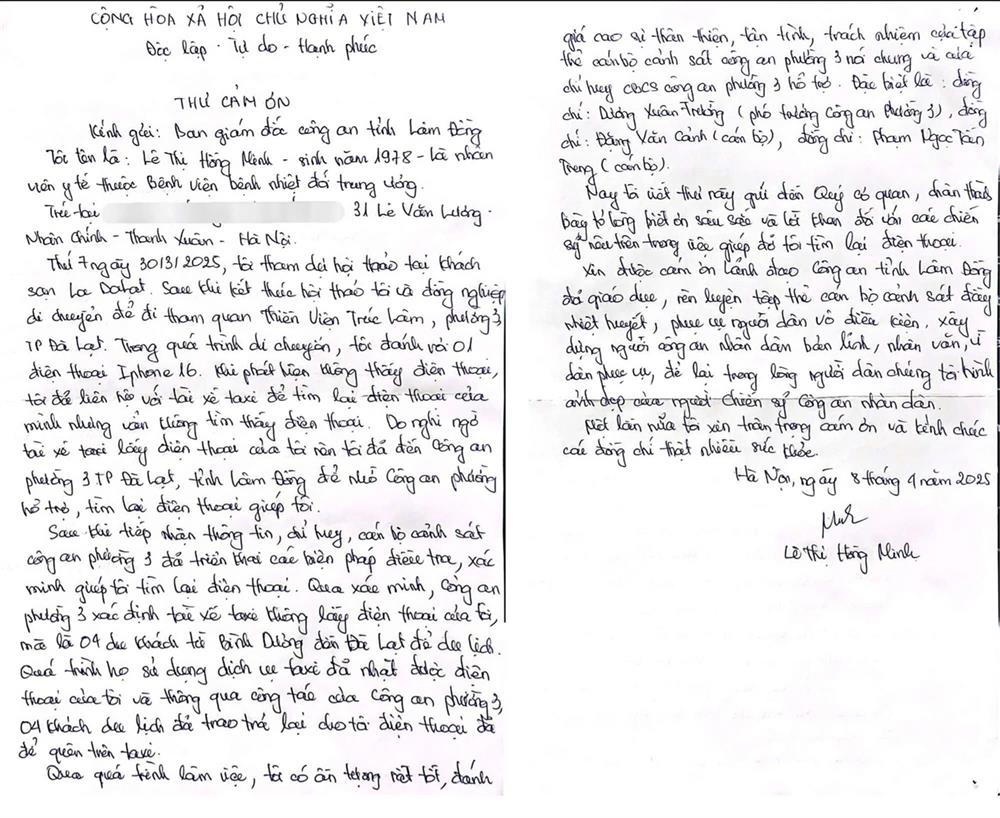 CỘNG HÒA XÃ HỘI CHỦ NGHĨA VIỆT NAM
Độc lập - Tự do - Hạnh phúc
THƯ CẢM ƠN
Kính gửi: Ban giám đốc công an tỉnh Lâm Đồng
Tôi tên là: Lê Thị Hồng Minh - sinh năm 1978 - là nhân
viên y tế thuộc Bệnh viện bệnh nhiệt đới trung ương.
Trú tại 31 Lê Văn Lương -
Nhân Chính - Thanh Xuân - Hà Nội.
Thứ 7 ngày 30/3/2025, tôi tham dự hội thảo tại khách
sạn La Dalat. Sau khi kết thúc hội thảo tôi và đồng nghiệp
di chuyển để đi tham quan Thiền Viện Trúc Lâm, phường 3,
TP Đà Lạt. Trong quá trình di chuyển, tôi đánh rơi 01
điện thoại Iphone 16. Khi phát hiện không thấy điện thoại,
tôi đã liên hệ với tài xế taxi để tìm lại điện thoại của
mình nhưng vẫn không tìm thấy điện thoại. Do nghi ngờ
tài xế taxi lấy điện thoại của tôi nên tôi đã đến Công an
phường 3 TP Đà Lạt, tỉnh Lâm Đồng để nhờ Công an phường
hỗ trợ, tìm lại điện thoại giúp tôi.
Sau khi tiếp nhận thông tin, chỉ huy, cán bộ cảnh sát
công an phường 3 đã triển khai các biện pháp điều tra, xác
minh giúp tôi tìm lại điện thoại. Qua xác minh, Công an
phường 3 xác định tài xế taxi không lấy điện thoại của tôi,
mà là 04 du khách từ Bình Dương đến Đà Lạt để du lịch.
Quá trình họ sử dụng dịch vụ taxi đã nhặt được điện
thoại của tôi và thông qua công tác của Công an phường 3,
04 khách du lịch đã trao trả lại cho tôi điện thoại đã
để quên trên taxi.
Qua quá trình làm việc, tôi có ấn tượng rất tốt, đánh
giá cao sự thân thiện, tận tình, trách nhiệm của tập
thể cán bộ cảnh sát công an phường 3 nói chung và của
chỉ huy CBCS công an phường 3 hỗ trợ. Đặc biệt là: đồng
chí: Dương Xuân Trường (phó trưởng Công an Phường 3), đồng
chí: Đặng Văn Cảnh (cán bộ), đồng chí: Phạm Ngọc Tấn
Trung (cán bộ).
Nay tôi viết thư này gửi đến Quý cơ quan, chân thành
bày tỏ lòng biết ơn sâu sắc và lời khen đối với các chiến
sỹ nêu trên trong việc giúp đỡ tôi tìm lại điện thoại.
Xin được cảm ơn Lãnh đạo Công an tỉnh Lâm Đồng
đã giáo dục, rèn luyện tập thể cán bộ cảnh sát đầy
nhiệt huyết, phục vụ người dân vô điều kiện, xây
dựng người công an nhân dân bản lĩnh, nhân văn, vì
dân phục vụ, để lại trong lòng người dân chúng tôi hình
ảnh đẹp của người Chiến sỹ Công an nhân dân.
Một lần nữa tôi xin trân trọng cảm ơn và kính chúc
các đồng chí thật nhiều sức khỏe.
Hà Nội, ngày 8 tháng 4 năm 2025
Lê Thị Hồng Minh